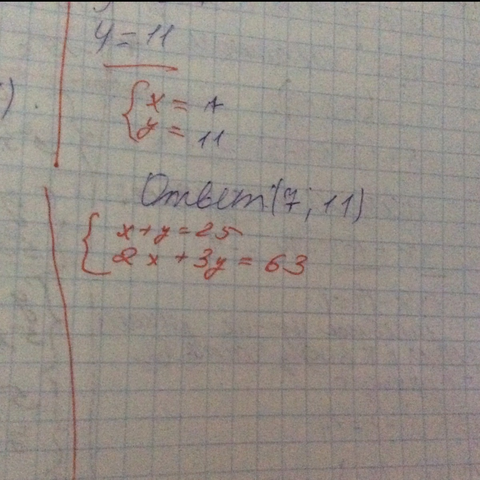 y = 11
{ x = 7
y = 11
Ответ (7; 11)
{ x + y = 25
2x + 3y = 63